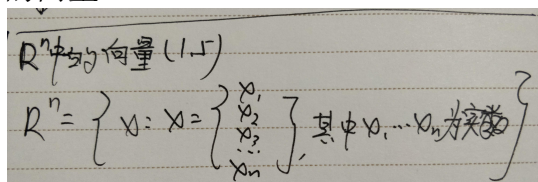 Rⁿ中的向量(1.5)
Rⁿ={x:x=[x₁ x₂ x₃ ... xₙ],其中x₁...xₙ为实数}